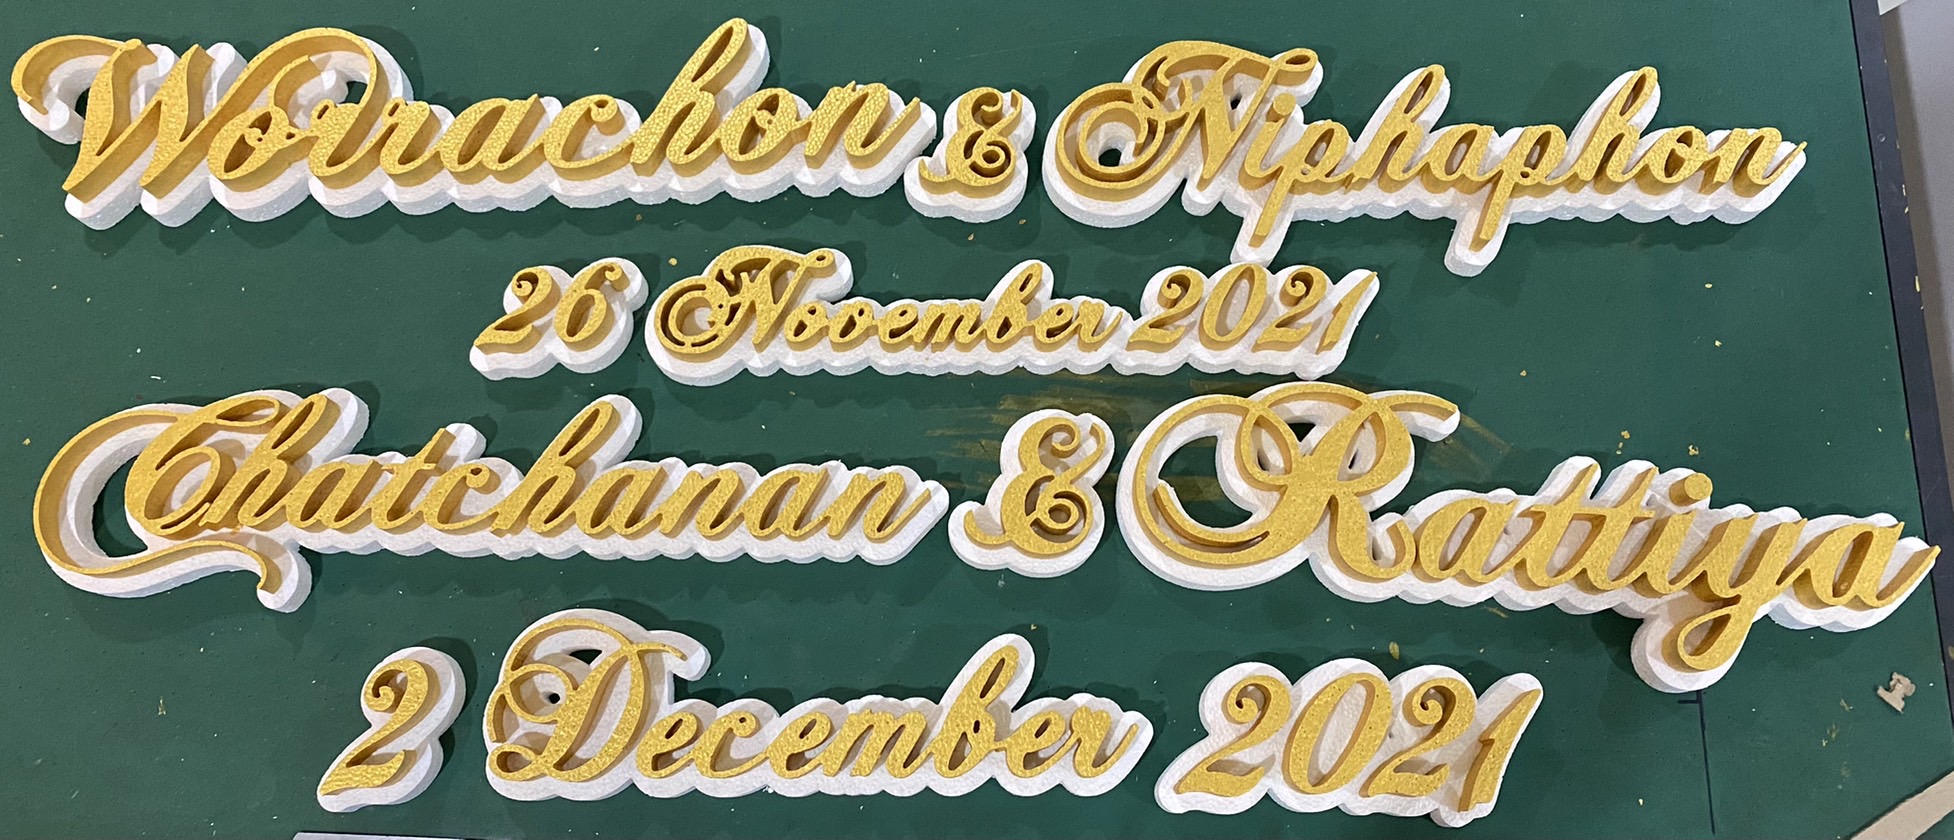 Worrachon & Niphaphon
26 November 2021
Chatchanan & Rattiya
2 December 2021